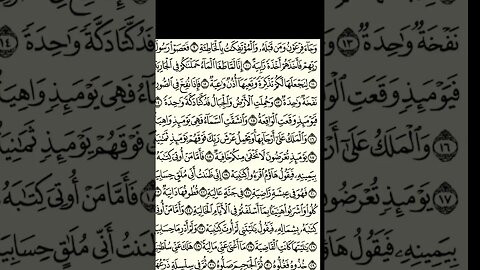 وَجَآءَ فِرْعَوْنُ وَمَن قَبْلَهُۥ وَٱلْمُؤْتَفِكَٰتُ بِٱلْخَاطِئَةِ ٩ فَعَصَوْا۟ رَسُولَ
رَبِّهِمْ فَأَخَذَهُمْ أَخْذَةً رَّابِيَةً ١٠ إِنَّا لَمَّا طَغَا ٱلْمَآءُ حَمَلْنَٰكُمْ فِى ٱلْجَارِيَةِ
١١ لِنَجْعَلَهَا لَكُمْ تَذْكِرَةً وَتَعِيَهَآ أُذُنٌ وَٰعِيَةٌ ١٢ فَإِذَا نُفِخَ فِى ٱلصُّورِ
نَفْخَةٌ وَٰحِدَةٌ ١٣ وَحُمِلَتِ ٱلْأَرْضُ وَٱلْجِبَالُ فَدُكَّتَا دَكَّةً وَٰحِدَةً ١٤
فَيَوْمَئِذٍ وَقَعَتِ ٱلْوَاقِعَةُ ١٥ وَٱنشَقَّتِ ٱلسَّمَآءُ فَهِىَ يَوْمَئِذٍ وَاهِيَةٌ
١٦ وَٱلْمَلَكُ عَلَىٰٓ أَرْجَآئِهَا وَيَحْمِلُ عَرْشَ رَبِّكَ فَوْقَهُمْ يَوْمَئِذٍ ثَمَٰنِيَةٌ
١٧ يَوْمَئِذٍ تُعْرَضُونَ لَا تَخْفَىٰ مِنكُمْ خَافِيَةٌ ١٨ فَأَمَّا مَنْ أُوتِىَ كِتَٰبَهُۥ
بِيَمِينِهِۦ فَيَقُولُ هَآؤُمُ ٱقْرَءُوا۟ كِتَٰبِيَهْ ١٩ إِنِّى ظَنَنتُ أَنِّى مُلَٰقٍ حِسَابِيَهْ
٢٠ فَهُوَ فِى عِيشَةٍ رَّاضِيَةٍ ٢١ فِى جَنَّةٍ عَالِيَةٍ ٢٢ قُطُوفُهَا دَانِيَةٌ ٢٣
كُلُوا۟ وَٱشْرَبُوا۟ هَنِيٓـًٔۢا بِمَآ أَسْلَفْتُمْ فِى ٱلْأَيَّامِ ٱلْخَالِيَةِ ٢٤ وَأَمَّا مَنْ أُوتِىَ
كِتَٰبَهُۥ بِشِمَالِهِۦ فَيَقُولُ يَٰلَيْتَنِى لَمْ أُوتَ كِتَٰبِيَهْ ٢٥ وَلَمْ أَدْرِ مَا حِسَابِيَهْ
٢٦ يَٰلَيْتَهَا كَانَتِ ٱلْقَاضِيَةَ ٢٧ مَآ أَغْنَىٰ عَنِّى مَالِيَهْ ٢٨ هَلَكَ عَنِّى سُلْطَٰنِيَهْ
٢٩ خُذُوهُ فَغُلُّوهُ ٣٠ ثُمَّ ٱلْجَحِيمَ صَلُّوهُ ٣١ ثُمَّ فِى سِلْسِلَةٍ ذَرْعُهَا